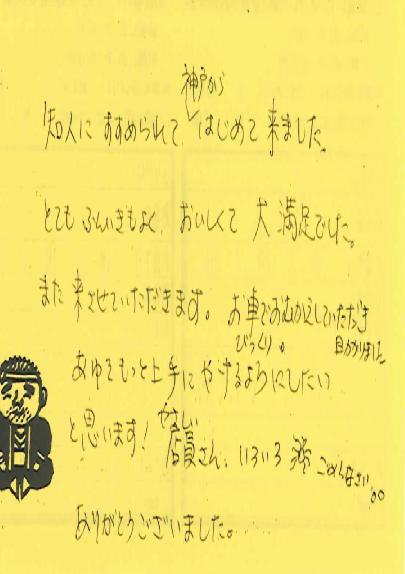 神戸から
知人にすすめられて、はじめて来ました。
とてもふんいきもよく、おいしくて大満足でした。
また来させていただきます。お車でおむかえしていただき
びっくり。 助かりました
あゆをもっと上手にやけるようにしたい
と思います! やさしい
店員さん、いろいろ ごめんなさい。
ありがとうございました。